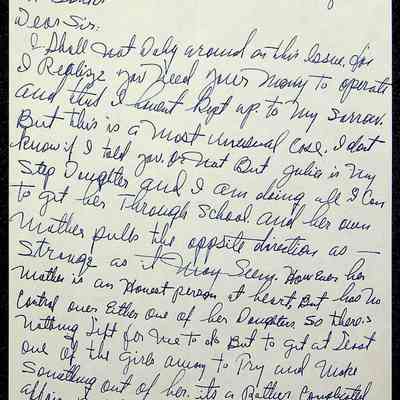 Dear Sir:
I Shall not Daly around on this Issue. for
I Realize you need your Money to operate
and that I havent Kept up. to my sorrow.
But this is a most unusual Case. I dont
know if I told you. or not But Julia is my
Step Daughter and I am doing all I Can
to get her Through School. and her own
Mother pulls the opposite direction as —
Strange as it May Seem. However her
Mother is an Honest person at heart, But has no
Control over Either one of her Daughters So there is
Nothing left for me to do But to get at least
one of the girls away to Try and Make
Something out of her. its a Rather Complicated
affair